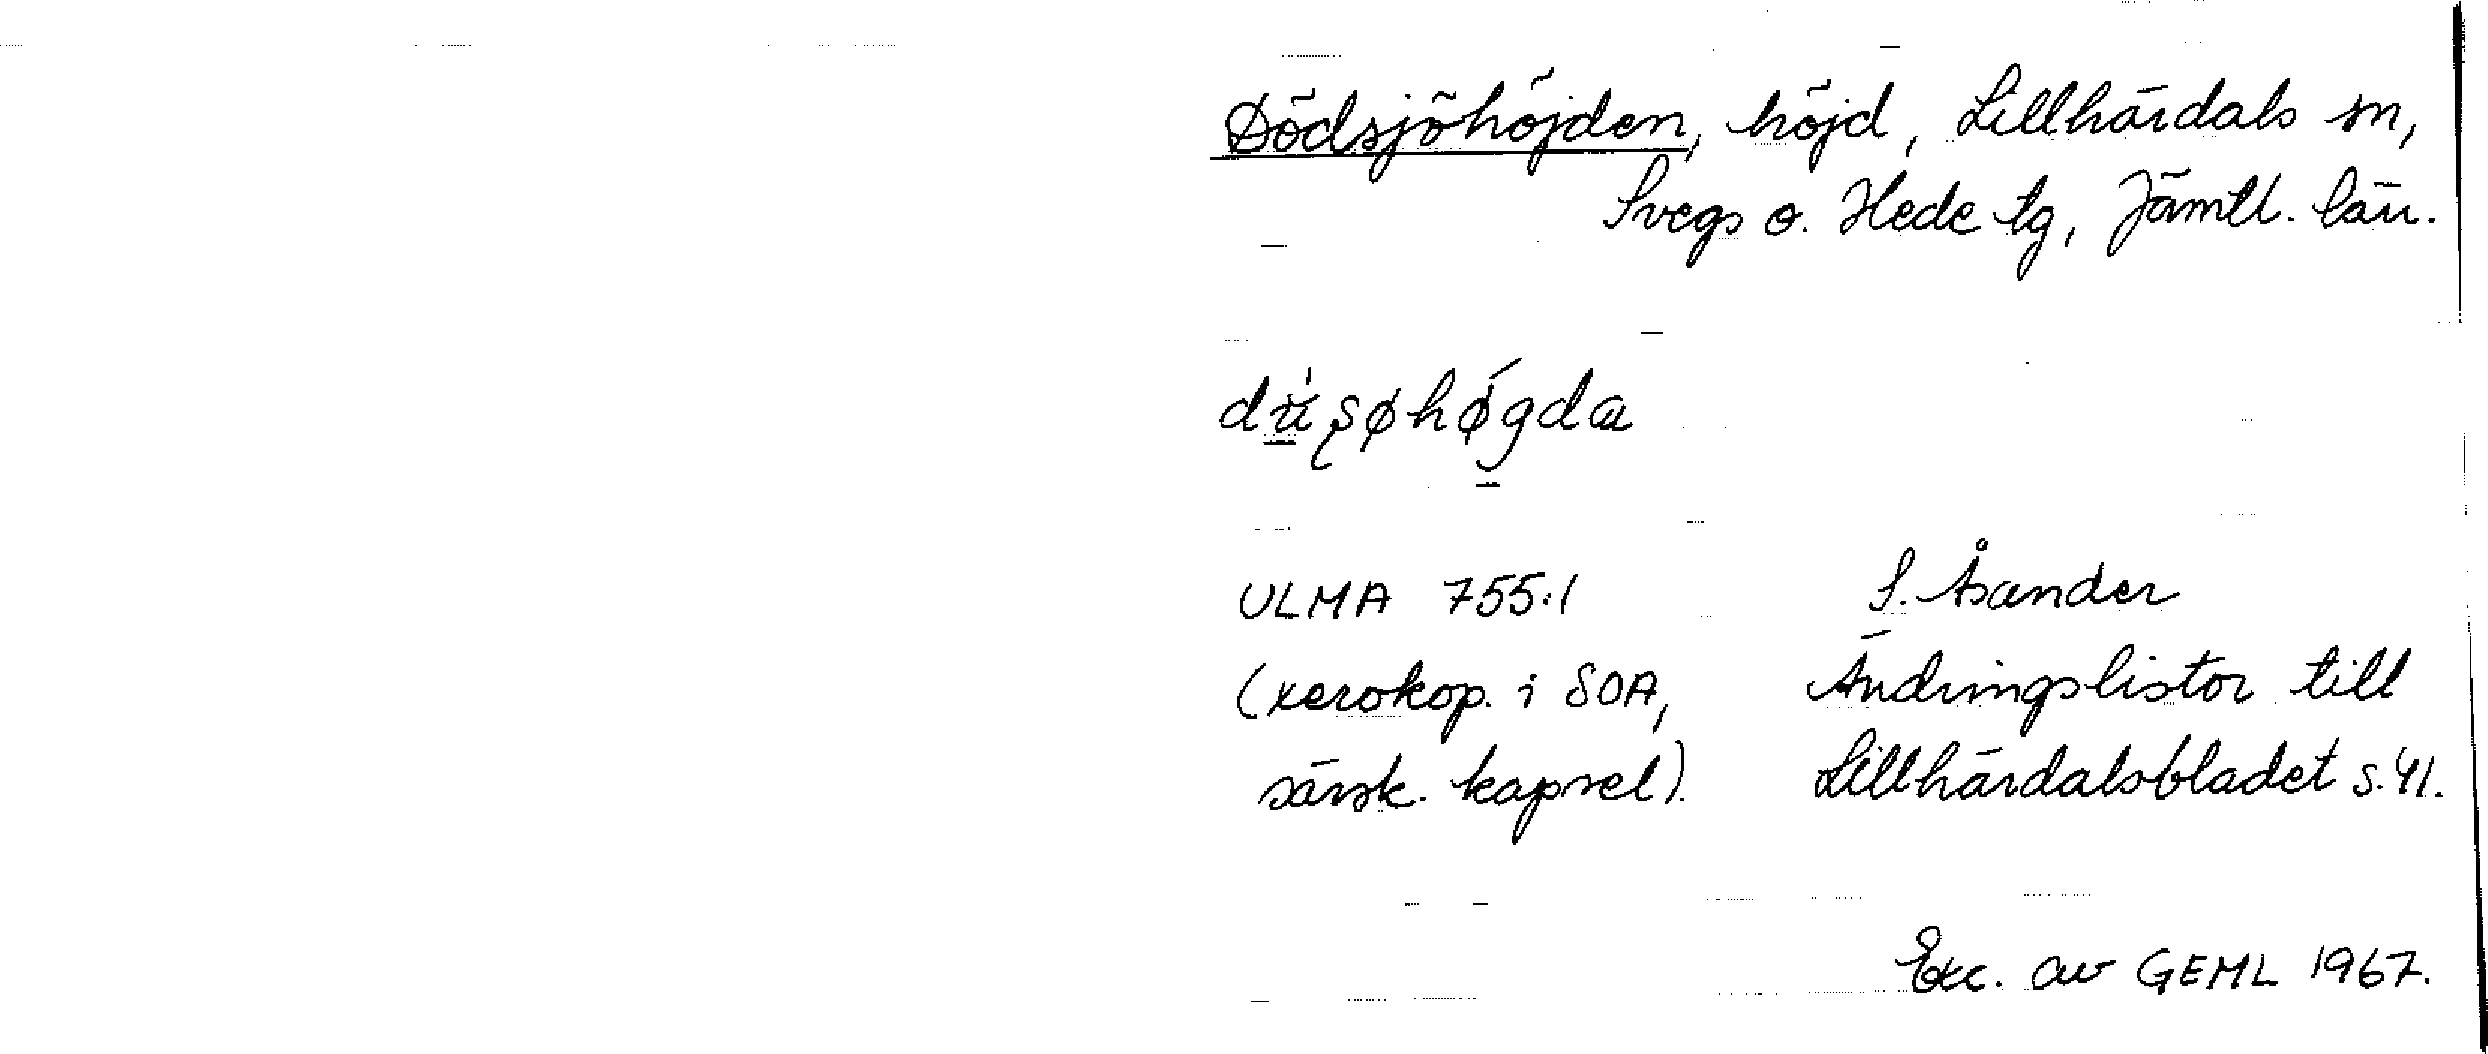 Dödsjöhöjden, höjd, Lillhärdals sn,
Svegs o. Hede tg, Jämtl. län.
ULMA 755:1
S. Åsander
(xerokop. i SOA,
Ändringslistor till
särsk. kapsel).
Lillhärdalsbladet s. 41.
Exc. av GEML 1967.